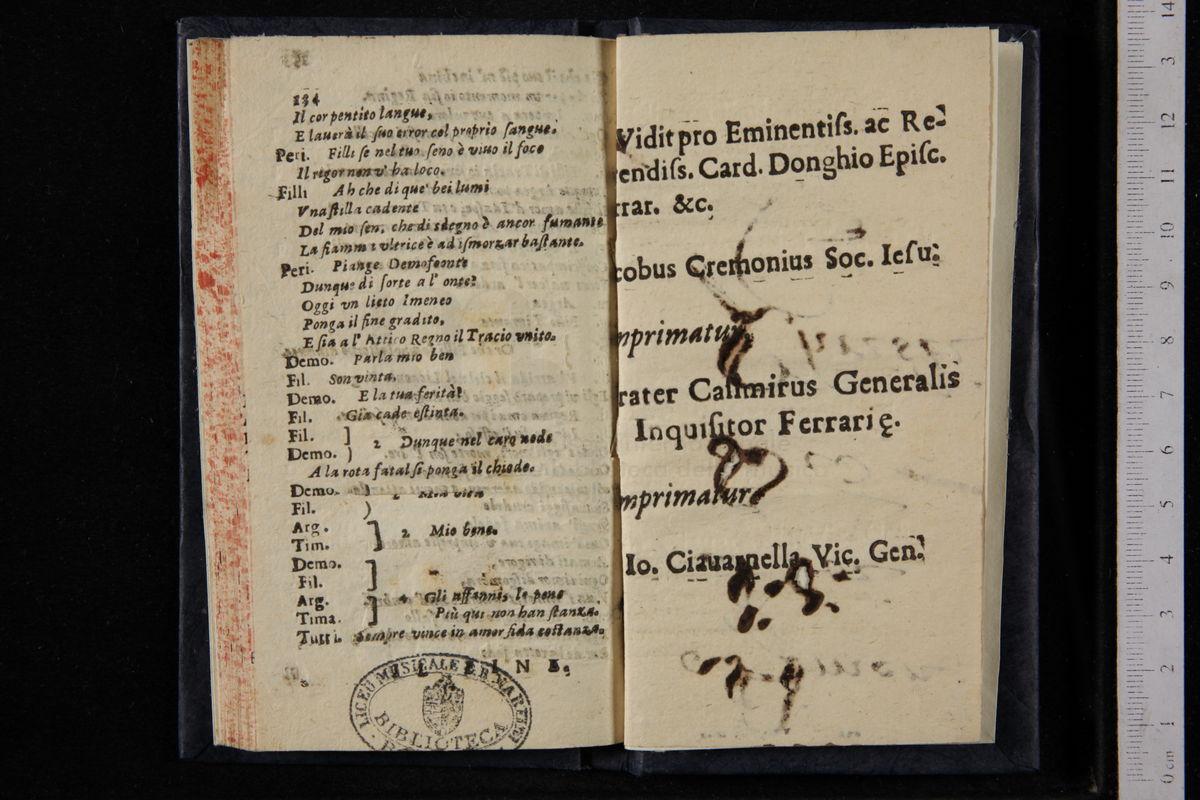 134
Il cor pentito langue,
E lauerà il suo error col proprio sangue.
Peri. Filli se nel tuo seno è viuo il foco
Il rigor non v' ha loco.
Filli Ah che di que' bei lumi
Vna stilla cadente
Del mio sen, che di sdegno è ancor fumante
La fiamma vltrice è ad ismorzar bastante.
Peri. Piange Demofoonte
Dunque di sorte a l' onte?
Oggi vn lieto Imeneo
Ponga il fine gradito,
E sia a l' Attico Regno il Tracio vnito.
Demo. Parla mio ben
Fil. Son vinta.
Demo. E la tua ferità?
Fil. Gia cade estinta.
Fil. ] 2 Dunque nel caro nodo
Demo. )
A la rota fatal si ponga il chiodo.
Demo. ) 2 Mia vita
Fil. )
Arg. ] 2 Mio bene.
Tim.
Demo. ]
Fil.
Arg. ] 4 Gli affanni, le pene
Tima. Più qui non han stanza.
Tutti. Sempre vince in amor fida costanza.
I N E.
LICEO MUSICALE
BIBLIOTECA
Vidit pro Eminentiss. ac Re-
rendiss. Card. Donghio Episc.
rrar. &c.
cobus Cremonius Soc. Iesu.
mprimatur
rater Casimirus Generalis
Inquisitor Ferrarię.
mprimatur
Io. Ciauarnella Vic. Gen.
0 cm 1 2 3 4 5 6 7 8 9 10 11 12 3 14